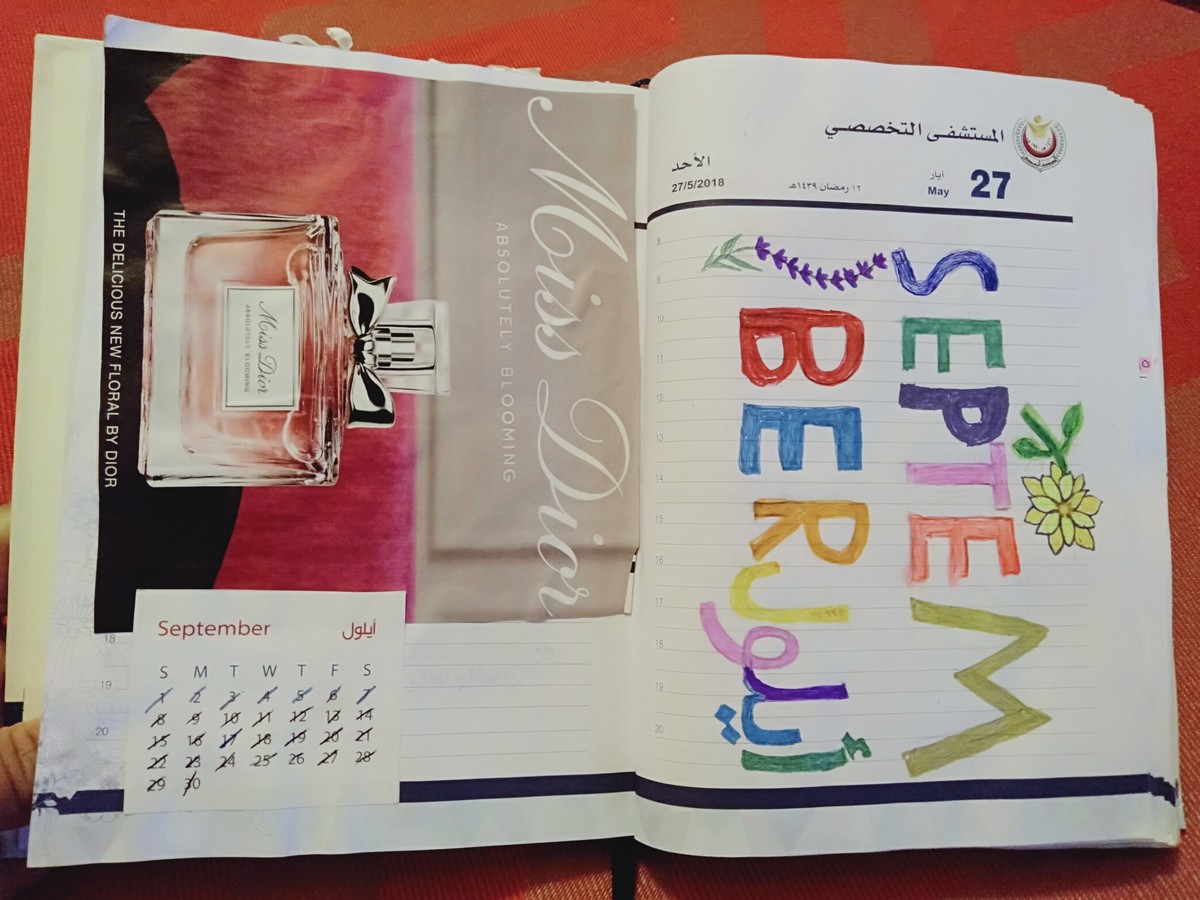 Miss Dior
ABSOLUTELY BLOOMING
Miss Dior
ABSOLUTELY BLOOMING
THE DELICIOUS NEW FLORAL BY DIOR
18
19
20
September أيلول
S M T W T F S
1 2 3 4 5 6 7
8 9 10 11 12 13 14
15 16 17 18 19 20 21
22 23 24 25 26 27 28
29 30
المستشفى التخصصي
الأحد
27/5/2018
١٢ رمضان ١٤٣٩هـ
أيار
May
27
8
9
10
11
12
13
14
15
16
17
18
19
20
SEPTEM
BER
أيلول